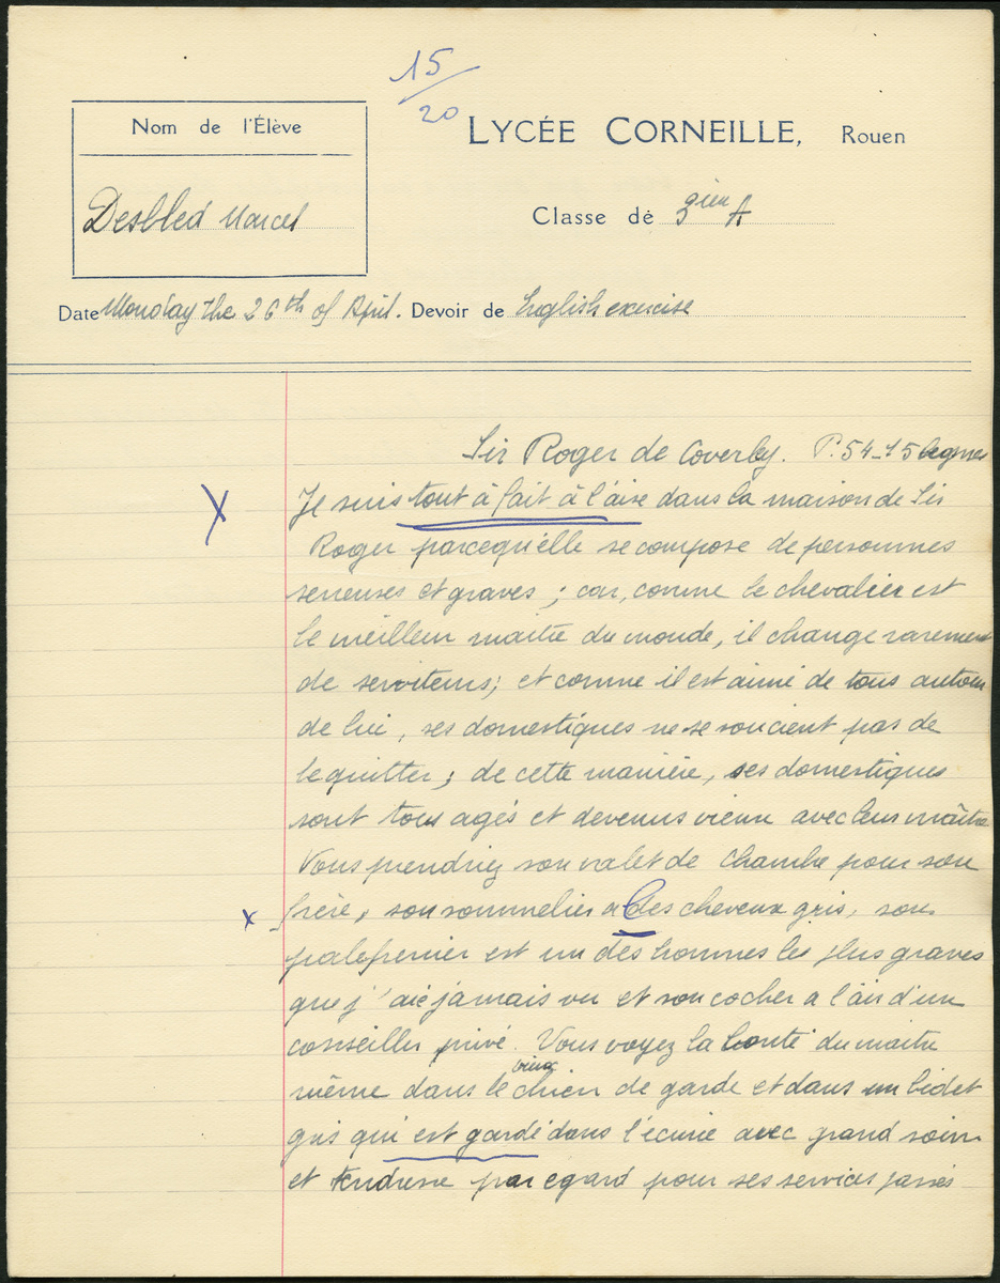 15/20
Nom de l'Élève
LYCÉE CORNEILLE, Rouen
Desbled Marcel
Classe de 3ième A
Date Monday the 26th of April. Devoir de English exercise
Sir Roger de Coverley. P. 54-15 lignes
X
Je suis tout à fait à l'aise dans la maison de Sir
Roger parcequ'elle se compose de personnes
serieuses et graves ; car, comme le chevalier est
le meilleur maitre du monde, il change rarement
de serviteurs; et comme il est aimé de tous autour
de lui, ses domestiques ne se soucient pas de
le quitter; de cette manière, ses domestiques
sont tous agés et devenus vieux avec leur maître
Vous prendriez son valet de chambre pour son
x
frère, son sommelier a des cheveux gris, son
palefrenier est un des hommes les plus graves
que j'aie jamais vu et son cocher a l'air d'un
conseiller privé. Vous voyez la bonté du maitre
même dans le vieux chien de garde et dans un bidet
gris qui est gardé dans l'écurie avec grand soin
et tendresse par egard pour ses services passés